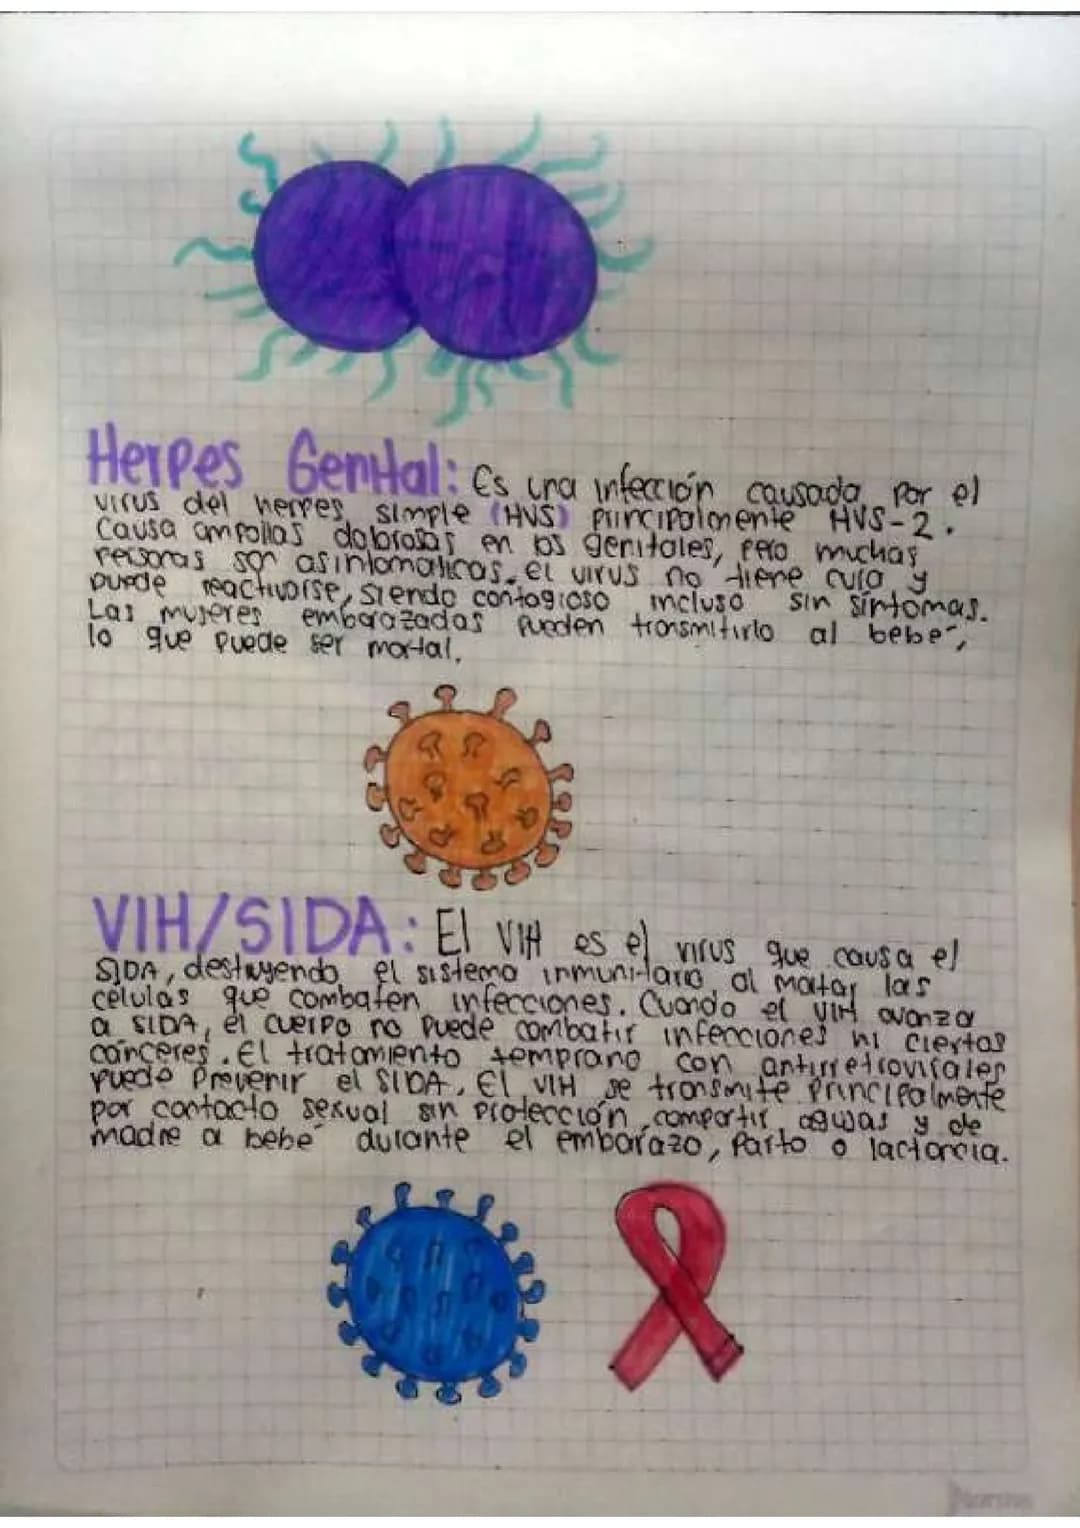 Herpes Genital: Es una infección causada por el
virus del herpes simple (HVS) principalmente HVS-2.
Causa ampollas dolorosas en los genitales, pero muchas
personas son asintomaticas. el virus no tiene cura y
puede reactivarse, siendo contagioso incluso sin síntomas.
Las mujeres embarazadas pueden transmitirlo al bebé,
lo que puede ser mortal.
VIH/SIDA: El VIH es el virus que causa el
SIDA, destruyendo el sistema inmunitario al matar las
celulas que combaten infecciones. Cuando el VIH avanza
a SIDA, el cuerpo no puede combatir infecciones ni ciertos
cánceres. El tratamiento temprano con antirretrovirales
puede prevenir el SIDA. El VIH se transmite principalmente
por contacto sexual sin protección, compartir agujas y de
madre a bebé durante el embarazo, parto o lactancia.
Norma